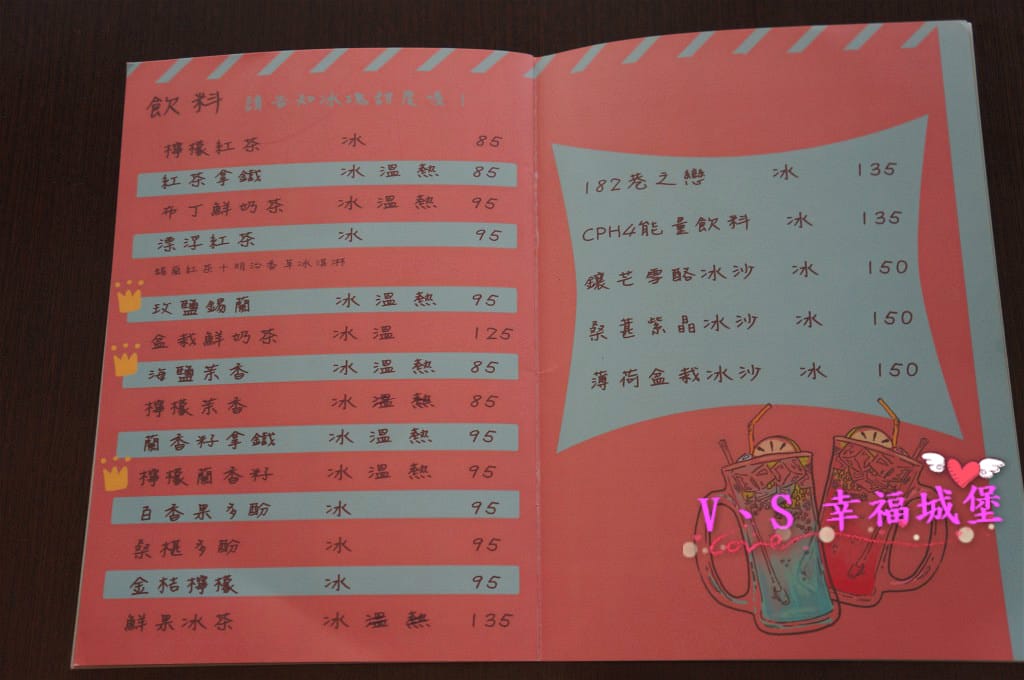 飲料 請告知冰塊甜度喔!
檸檬紅茶 冰 85
紅茶拿鐵 冰 溫 熱 85
布丁鮮奶茶 冰 溫 熱 95
漂浮紅茶 冰 95
錫蘭紅茶+明治香草冰淇淋
玫鹽錫蘭 冰 溫 熱 95
盆栽鮮奶茶 冰 溫 125
海鹽茉香 冰 溫 熱 85
檸檬茉香 冰 溫 熱 85
蘭香籽拿鐵 冰 溫 熱 95
檸檬蘭香籽 冰 溫 熱 95
百香果多酚 冰 95
桑椹多酚 冰 95
金桔檸檬 冰 95
鮮果冰茶 冰 溫 熱 135
182巷之戀 冰 135
CPH4能量飲料 冰 135
鑲芒雪酪冰沙 冰 150
桑葚紫晶冰沙 冰 150
薄荷盆栽冰沙 冰 150
V、S 幸福城堡
Love